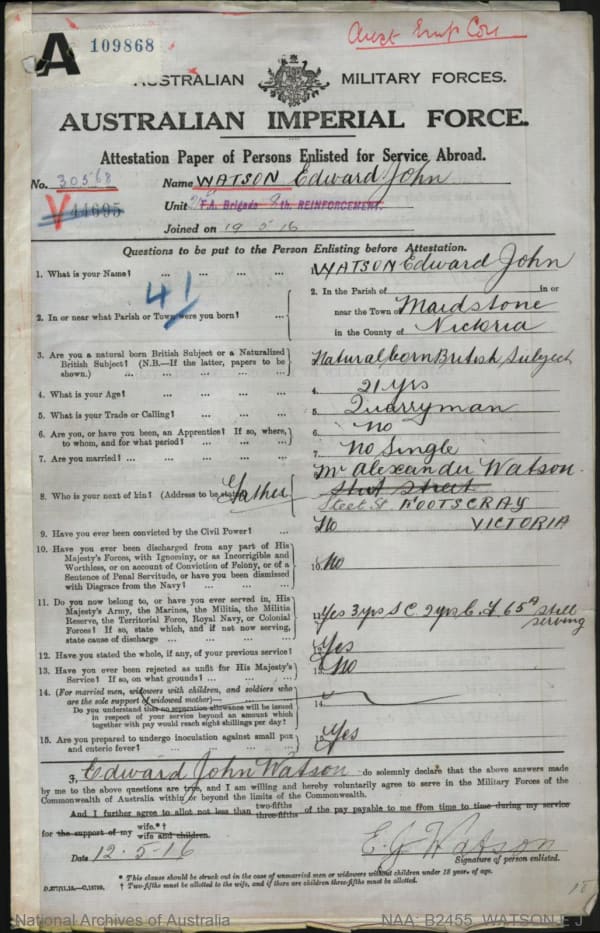 A 109868
AUSTRALIAN MILITARY FORCES.
AUSTRALIAN IMPERIAL FORCE.
Attestation Paper of Persons Enlisted for Service Abroad.
No. 30568 Name WATSON Edward John
V 44695 Unit F.A. Brigade 8th. REINFORCEMENT.
Joined on 19 5 16
Questions to be put to the Person Enlisting before Attestation.
1. What is your Name? ... ... ... ... WATSON Edward John
41
2. In or near what Parish or Town were you born? ... 2. In the Parish of in or
near the Town of Maidstone
in the County of Victoria
3. Are you a natural born British Subject or a Naturalized Natural born British Subject
British Subject? (N.B.—If the latter, papers to be
shown.) ... ... ... ... ...
4. What is your Age? ... ... ... ... 4. 21 yrs
5. What is your Trade or Calling? ... ... ... 5. Quarryman
6. Are you, or have you been, an Apprentice? If so, where, 6. no
to whom, and for what period? ... ... ...
7. Are you married? ... ... ... ... ... 7. No Single
8. Who is your next of kin? (Address to be stated) Father Mr Alexander Watson
Street
Steet St FOOTSCRAY
VICTORIA
9. Have you ever been convicted by the Civil Power? ... No
10. Have you ever been discharged from any part of His 10. No
Majesty's Forces, with Ignominy, or as Incorrigible and
Worthless, or on account of Conviction of Felony, or of a
Sentence of Penal Servitude, or have you been dismissed
with Disgrace from the Navy? ... ... ...
11. Do you now belong to, or have you ever served in, His 11. Yes 3 yrs S C 2 yrs C. F 65A still
Majesty's Army, the Marines, the Militia, the Militia serving
Reserve, the Territorial Force, Royal Navy, or Colonial
Forces? If so, state which, and if not now serving,
state cause of discharge ... ... ... ...
12. Have you stated the whole, if any, of your previous service? 12. Yes
13. Have you ever been rejected as unfit for His Majesty's 13. No
Service? If so, on what grounds? ... ... ...
14. (For married men, widowers with children, and soldiers who 14.
are the sole support of widowed mother)—
Do you understand that no separation allowance will be issued
in respect of your service beyond an amount which
together with pay would reach eight shillings per day?
15. Are you prepared to undergo inoculation against small pox 15. Yes
and enteric fever? ... ... ... ...
I, Edward John Watson do solemnly declare that the above answers made
by me to the above questions are true, and I am willing and hereby voluntarily agree to serve in the Military Forces of the
Commonwealth of Australia within or beyond the limits of the Commonwealth.
And I further agree to allot not less than two-fifths three-fifths of the pay payable to me from time to time during my service
for the support of my wife.*† wife and children.
Date 12.5.16 E. J Watson
Signature of person enlisted.
* This clause should be struck out in the case of unmarried men or widowers without children under 18 years of age.
† Two-fifths must be allotted to the wife, and if there are children three-fifths must be allotted.
National Archives of Australia NAA: B2455, WATSON E J